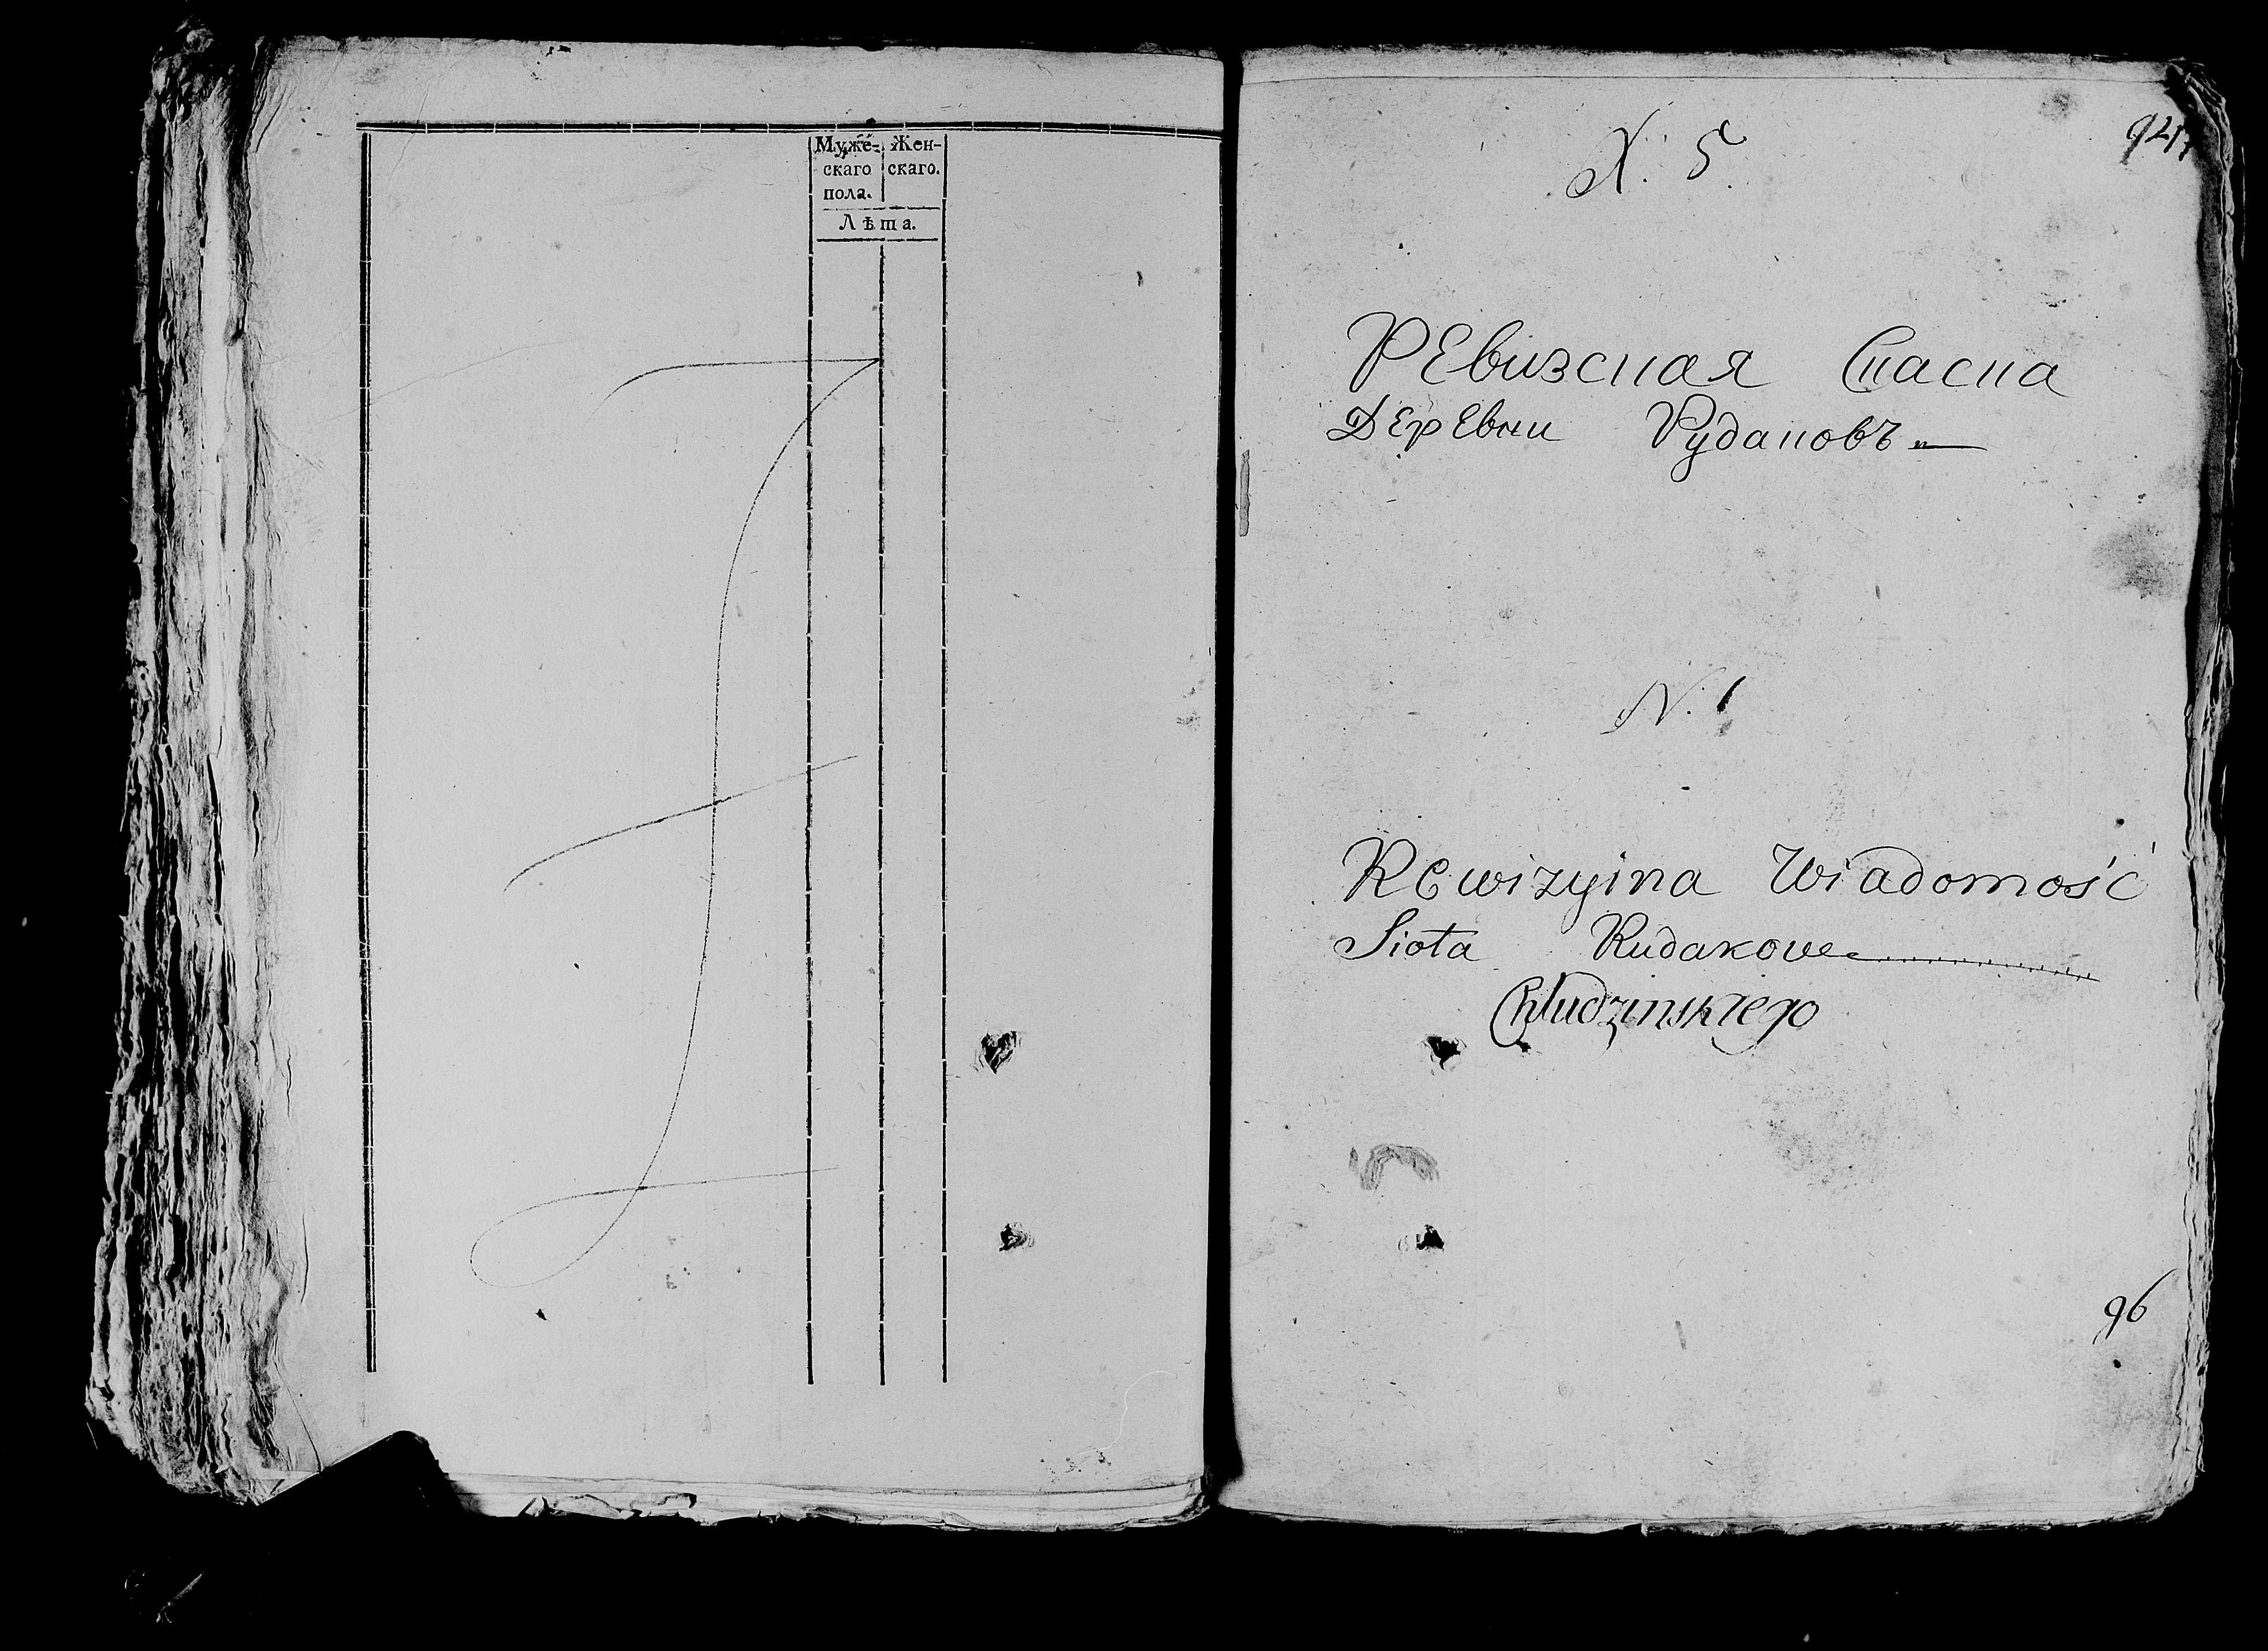 Муже- Жен-
скаго скаго.
пола.
Лѣта.
N. 5.
Ревизская Скаска
Деревни Рудаковъ
N. 1
Rewizyina Wiadomość
Sioła Rudakowe
Chłudzinskiego
96